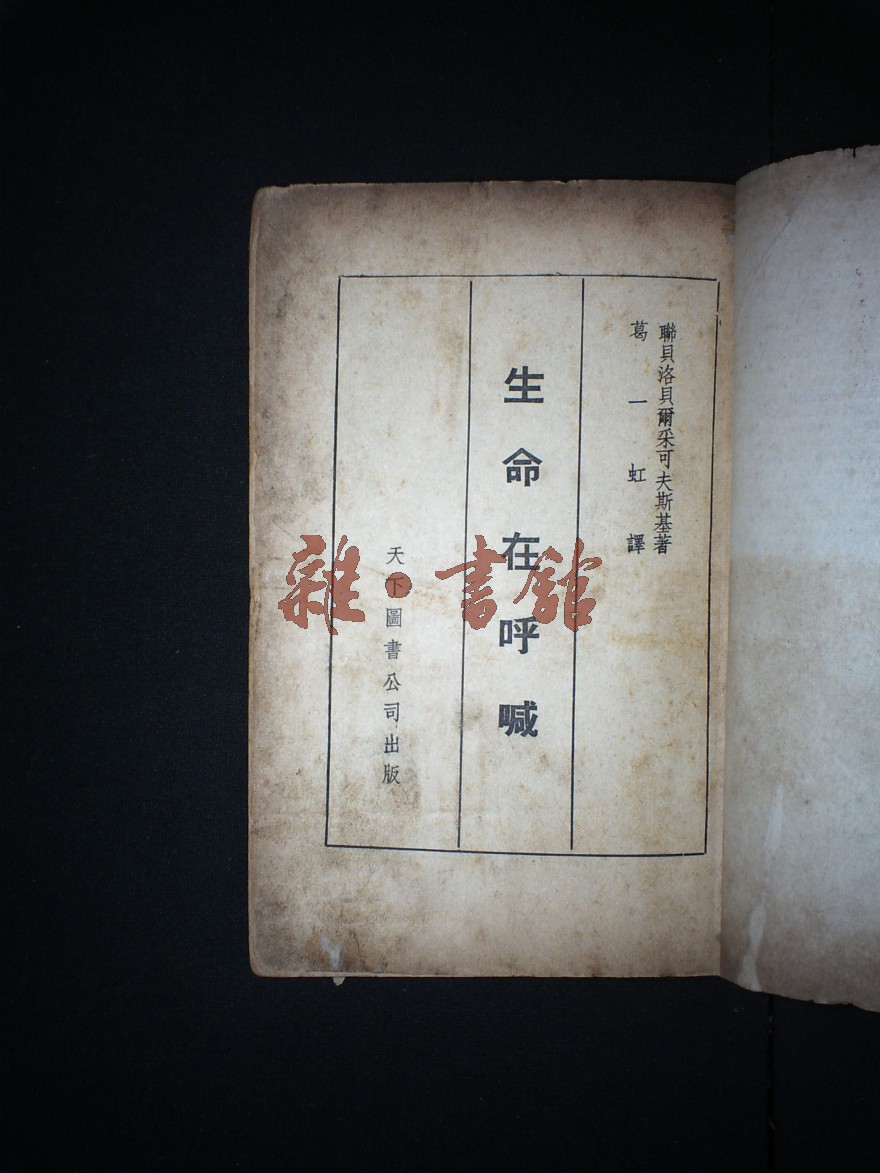 聯貝洛貝爾采可夫斯基著
葛一虹譯
生命在呼喊
天下圖書公司出版
雜·書館